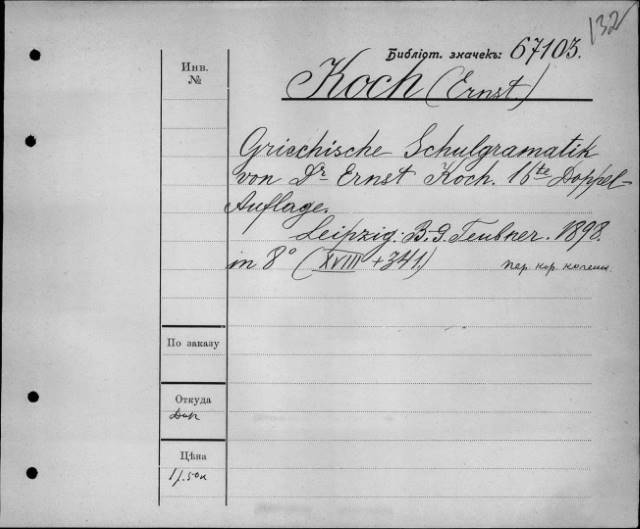 132
Библіот. значекъ: 67103.
Инв.
№
Koch (Ernst.)
Griechische Schulgramatik
von Dr Ernst Koch. 16te Doppel-
Auflage.
Leipzig. B. G. Teubner. 1898.
in 8° (XVIII + 341)
пер. кор.
По заказу
Откуда
Дар
Цѣна